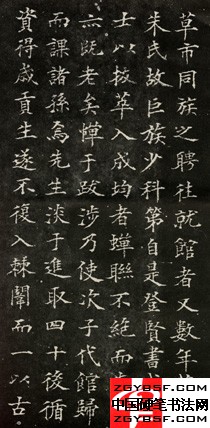 草市同族之聘往就館者又數年
朱氏故巨族少科第自是登賢書
士以拔萃入成均者蟬聯不絕而
六既老矣憚于跋涉乃使次子代館歸
而課諸孫焉先生淡于進取四十後循
資得歲貢生遂不復入棘闈而一以古
ZGYBSF.COM
中国硬笔书法网
ZGYBSF.COM